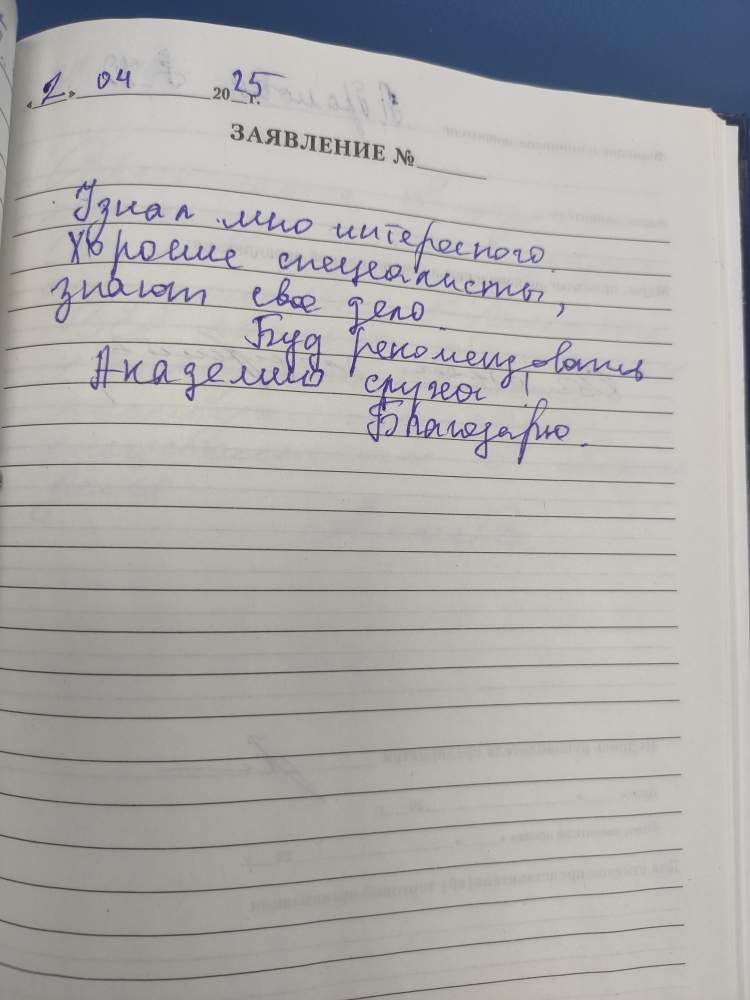 «2» 04 2025 г.
ЗАЯВЛЕНИЕ №
Узнал мно интересного.
Хорошие специалисты,
знают свое дело.
Буд рекомендовать
Академию !
Благодарю.